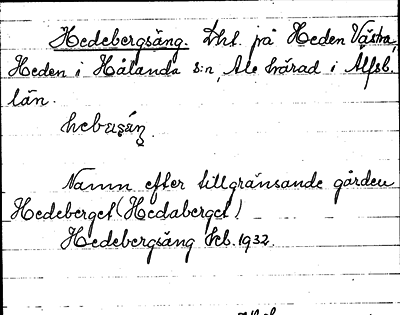 Hedebergsäng. Lht. på Heden Västra,
Heden i Hålanda s:n, Ale härad i Älfsb.
län.
Namn efter tillgränsande gården
Hedeberget (Hedaberget)
Hedebergsäng Seb. 1932.